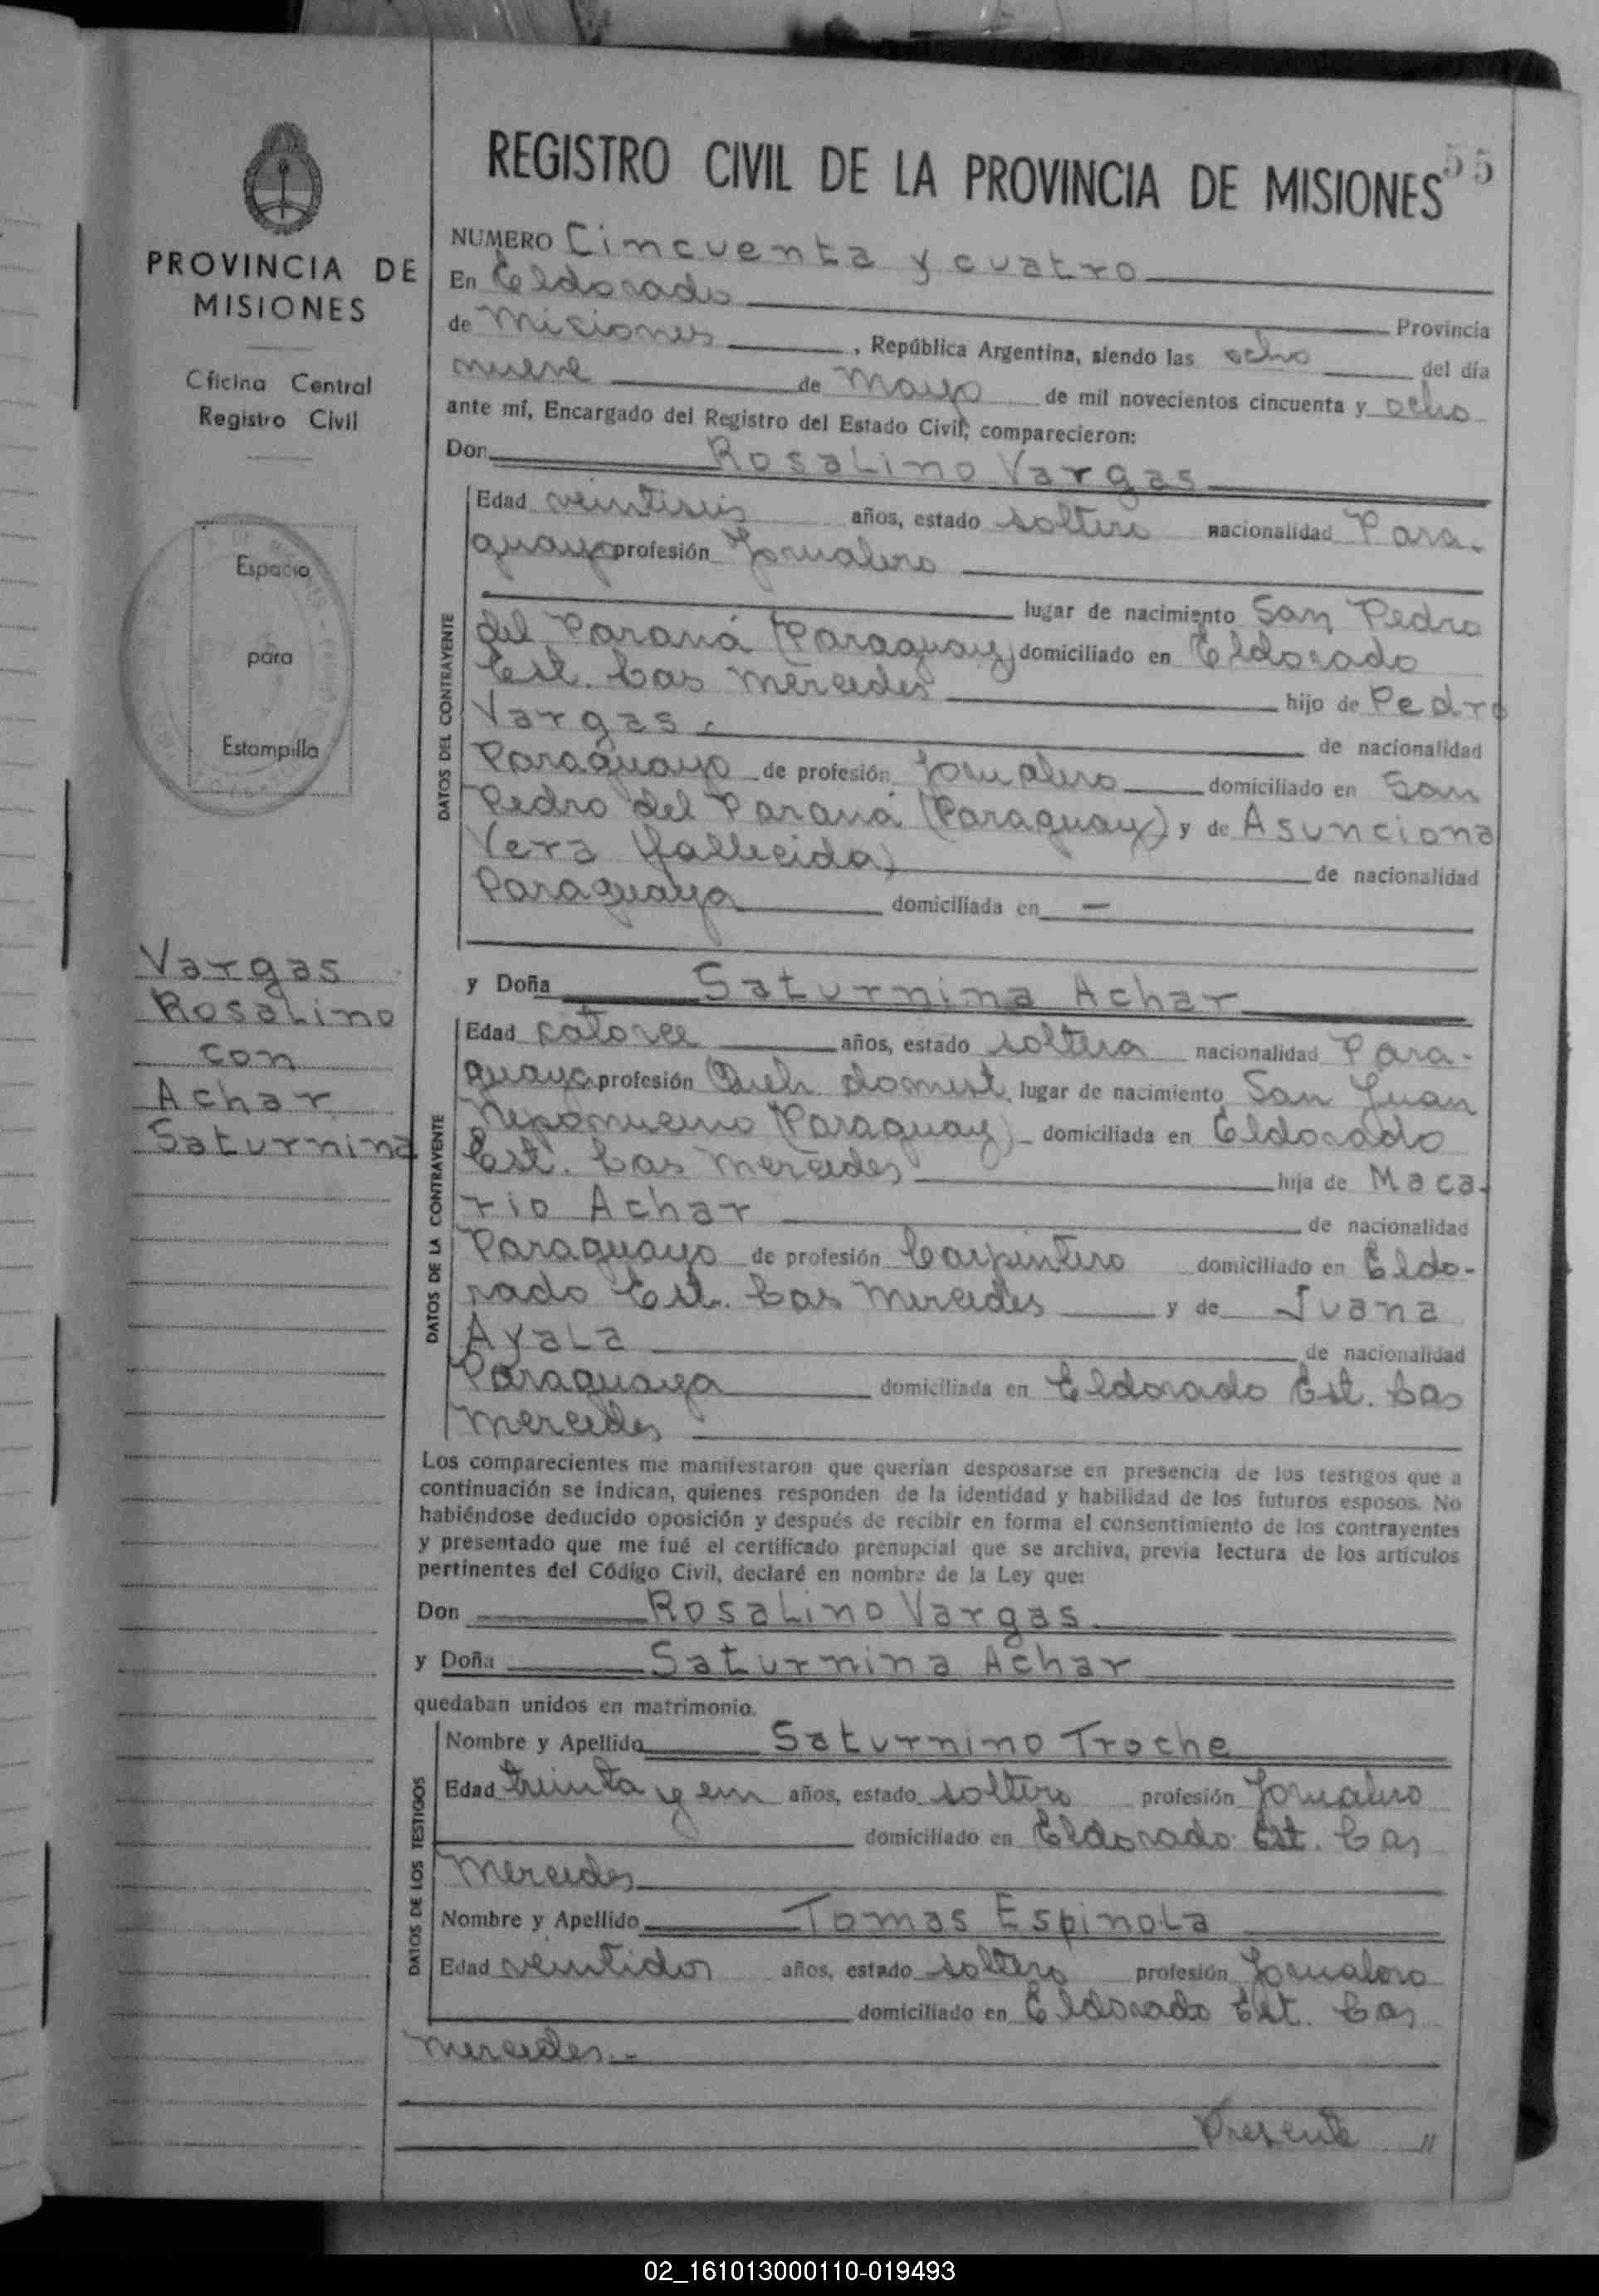 PROVINCIA DE
MISIONES
Oficina Central
Registro Civil
Espacio
para
Estampilla
Vargas
Rosalino
con
Achar
Saturnina
55
REGISTRO CIVIL DE LA PROVINCIA DE MISIONES
NUMERO Cincuenta y cuatro
En Eldorado Provincia
de Misiones, República Argentina, siendo las ocho del día
nueve de Mayo de mil novecientos cincuenta y ocho
ante mí, Encargado del Registro del Estado Civil, comparecieron:
Don Rosalino Vargas
DATOS DEL CONTRAYENTE
Edad veintiseis años, estado soltero nacionalidad Para-
guayo profesión Jornalero
lugar de nacimiento San Pedro
del Paraná (Paraguay) domiciliado en Eldorado
Est. Las Mercedes hijo de Pedro
Vargas. de nacionalidad
Paraguayo de profesión Jornalero domiciliado en San
Pedro del Paraná (Paraguay) y de Asunciona
Vera (fallecida) de nacionalidad
Paraguaya domiciliada en —
y Doña Saturnina Achar
DATOS DE LA CONTRAYENTE
Edad catorce años, estado soltera nacionalidad Para-
guaya profesión Queh. domest. lugar de nacimiento San Juan
Nepomuceno (Paraguay) domiciliada en Eldorado
Est. Las Mercedes hija de Maca-
rio Achar de nacionalidad
Paraguayo de profesión Carpintero domiciliado en Eldo-
rado Est. Las Mercedes y de Juana
Ayala de nacionalidad
Paraguaya domiciliada en Eldorado Est. Las
Mercedes
Los comparecientes me manifestaron que querían desposarse en presencia de los testigos que a
continuación se indican, quienes responden de la identidad y habilidad de los futuros esposos. No
habiéndose deducido oposición y después de recibir en forma el consentimiento de los contrayentes
y presentado que me fué el certificado prenupcial que se archiva, previa lectura de los artículos
pertinentes del Código Civil, declaré en nombre de la Ley que:
Don Rosalino Vargas
y Doña Saturnina Achar
quedaban unidos en matrimonio.
DATOS DE LOS TESTIGOS
Nombre y Apellido Saturnino Troche
Edad treinta y un años, estado soltero profesión Jornalero
domiciliado en Eldorado Est. Las
Mercedes
Nombre y Apellido Tomas Espinola
Edad veintidos años, estado soltero profesión Jornalero
domiciliado en Eldorado Est. Las
Mercedes.-
Presente "
02_161013000110-019493